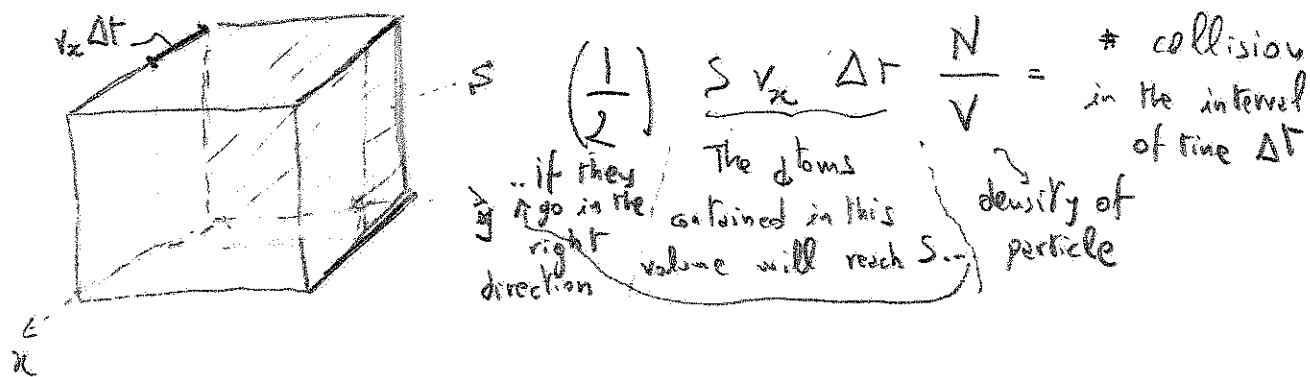 vₓ Δt
S
(1/2) S vₓ Δt N/V = # collision
in the interval
of time Δt
.. if they
go in the
right
direction
The atoms
contained in this
volume will reach S...
density of
particle
y
x